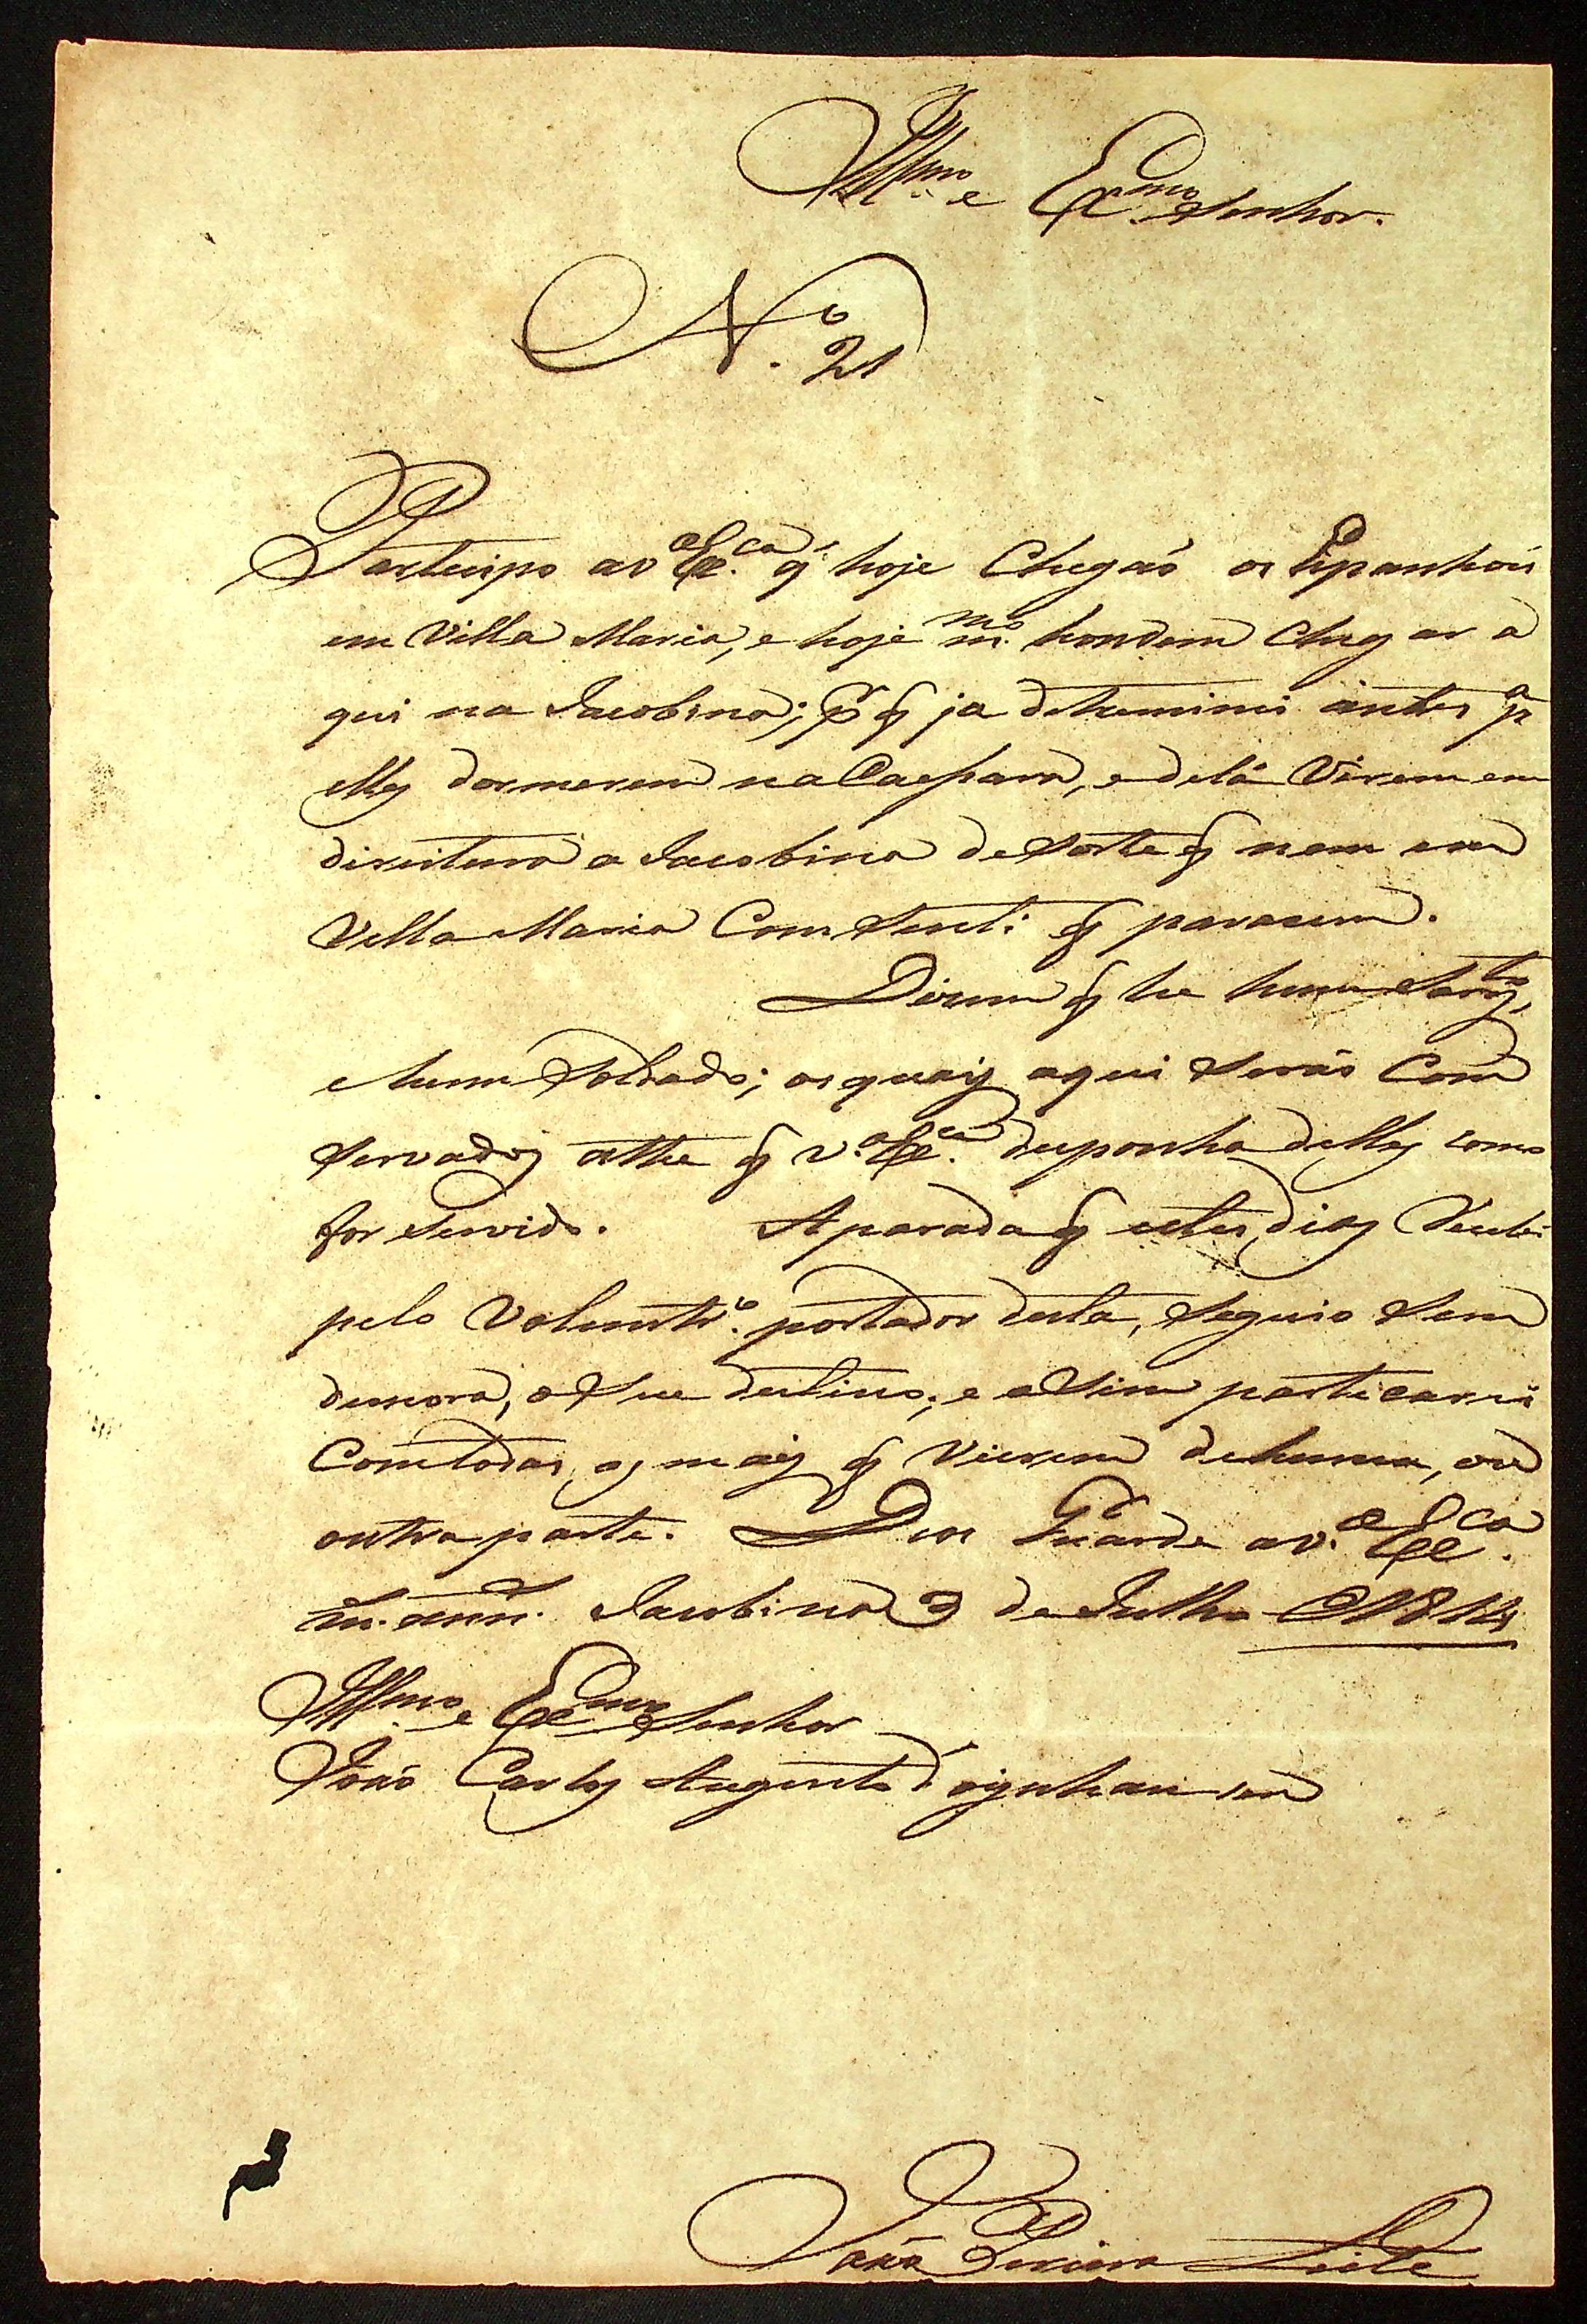 Illmo. e Exmo. Senhor.
No. 21
Partecipo a V. Exca. q̃ hoje Chegaõ os Espanhois
em Villa Maria, e hoje mmo. handem Chegar a
qui na Jacobina; p̃ q̃ ja detreminei antes pa
elles dormerem na Caessara, e de lá Virem em
direitura a Jacobina de Sorte q̃ nem em
Villa Maria Comsenti q̃ parasem.
Dizem q̃ he hum Sargto,
e hum Soldado; os quais aqui Seraõ Com
Servados athe q̃ V. Exca. desponha delles como
for Servido. A parada q̃ estes dias Recebi
pelo Voluntro. portador desta, Seguio Sem
demora, a Seu destino; e aSim particarei
Com todas as mais q̃ Vierem de huma, ou
outra parte. Deos Guarde a V. Exca.
m. ann. Jacobina 3 de Julho de 1814
Illmo. e Exmo. Senhor
Joaõ Carlos Augusto d'Oignhausen
Joaõ Pereira Leite